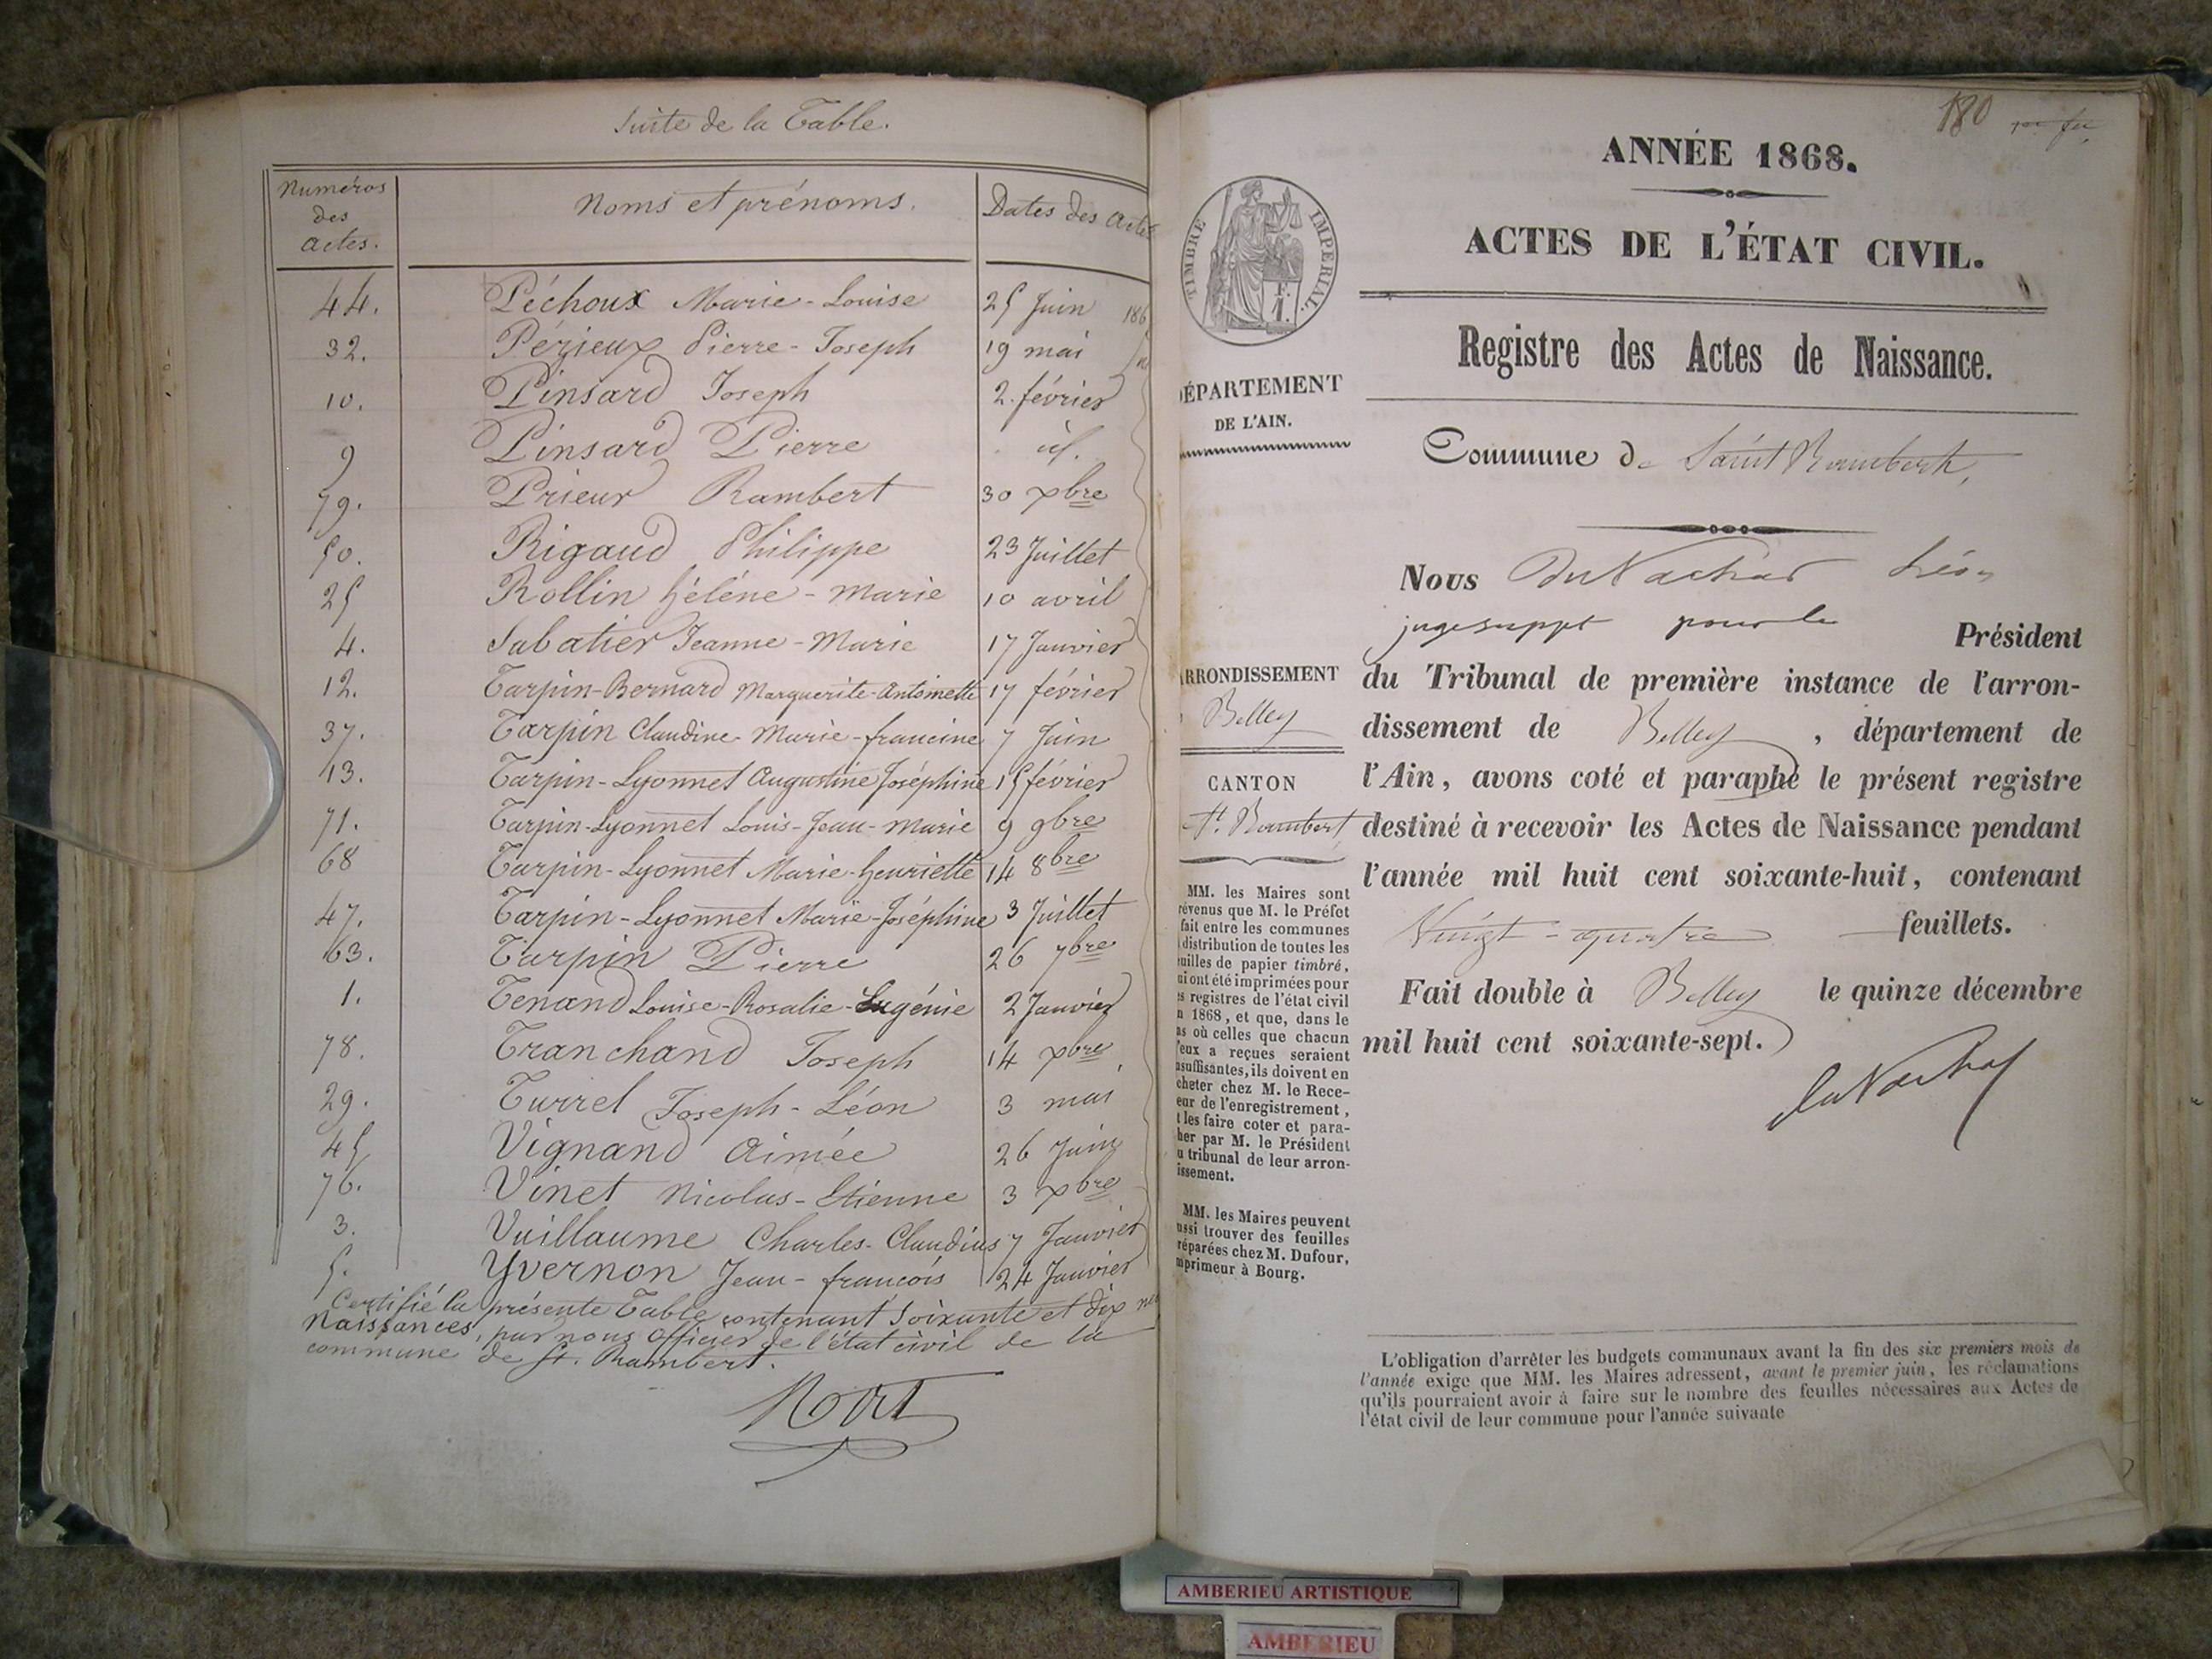 Suite de la Table.
Numéros des actes. Noms et prénoms. Dates des actes
44. Péchoux Marie-Louise 25 Juin 186
32. Périeux Pierre-Joseph 19 mai
10. Pinsard Joseph 2. février
9 Pinsard Pierre id.
79. Prieur Rambert 30 xbre
50. Rigaud Philippe 23 Juillet
25 Rollin héléne-marie 10 avril
4. Sabatier Jeanne-Marie 17 Janvier
12. Tarpin-Bernard Marguerite-Antoinette 17 février
37. Tarpin Claudine-Marie-francine 7 Juin
13. Tarpin-Lyonnet Augustine Joséphine 15 février
71. Tarpin-Lyonnet Louis-Jean-Marie 9 9bre
68 Tarpin-Lyonnet Marie-henriette 14 8bre
47. Tarpin-Lyonnet Marie-Joséphine 3 Juillet
63. Tarpin Pierre 26 7bre
1. Tenand Louise-Rosalie-Eugénie 2 Janvier
78. Tranchand Joseph 14 xbre
29. Turrel Joseph-Léon 3 mai
45 Vignand Aimée 26 Juin
76. Vinet Nicolas-Etienne 3 xbre
3. Vuillaume Charles-Claudius 7 Janvier
5. Yvernon Jean-francois 24 Janvier
Certifié la présente Table contenant Soixante et dix
Naissances, par nous Officier de l'état civil de la
commune de St. Rambert.
180
ANNÉE 1868.
ACTES DE L'ÉTAT CIVIL.
TIMBRE IMPÉRIAL.
Registre des Actes de Naissance.
DÉPARTEMENT
DE L'AIN.
Commune de Saint Rambert,
Nous Léon
juge suppt pour le Président
ARRONDISSEMENT
Belley
du Tribunal de première instance de l'arron-
dissement de Belley, département de
l'Ain, avons coté et paraphé le présent registre
CANTON
St. Rambert
destiné à recevoir les Actes de Naissance pendant
l'année mil huit cent soixante-huit, contenant
Vingt-quatre feuillets.
Fait double à Belley le quinze décembre
mil huit cent soixante-sept.
MM. les Maires sont
révenus que M. le Préfet
fait entre les communes
distribution de toutes les
euilles de papier timbré,
ui ont été imprimées pour
es registres de l'état civil
n 1868, et que, dans le
as où celles que chacun
'eux a reçues seraient
nsuffisantes, ils doivent en
cheter chez M. le Rece-
eur de l'enregistrement,
t les faire coter et para-
her par M. le Président
u tribunal de leur arron-
issement.
MM. les Maires peuvent
ussi trouver des feuilles
réparées chez M. Dufour,
mprimeur à Bourg.
L'obligation d'arrêter les budgets communaux avant la fin des six premiers mois de
l'année exige que MM. les Maires adressent, avant le premier juin, les réclamations
qu'ils pourraient avoir à faire sur le nombre des feuilles nécessaires aux Actes de
l'état civil de leur commune pour l'année suivante
AMBERIEU ARTISTIQUE
AMBERIEU